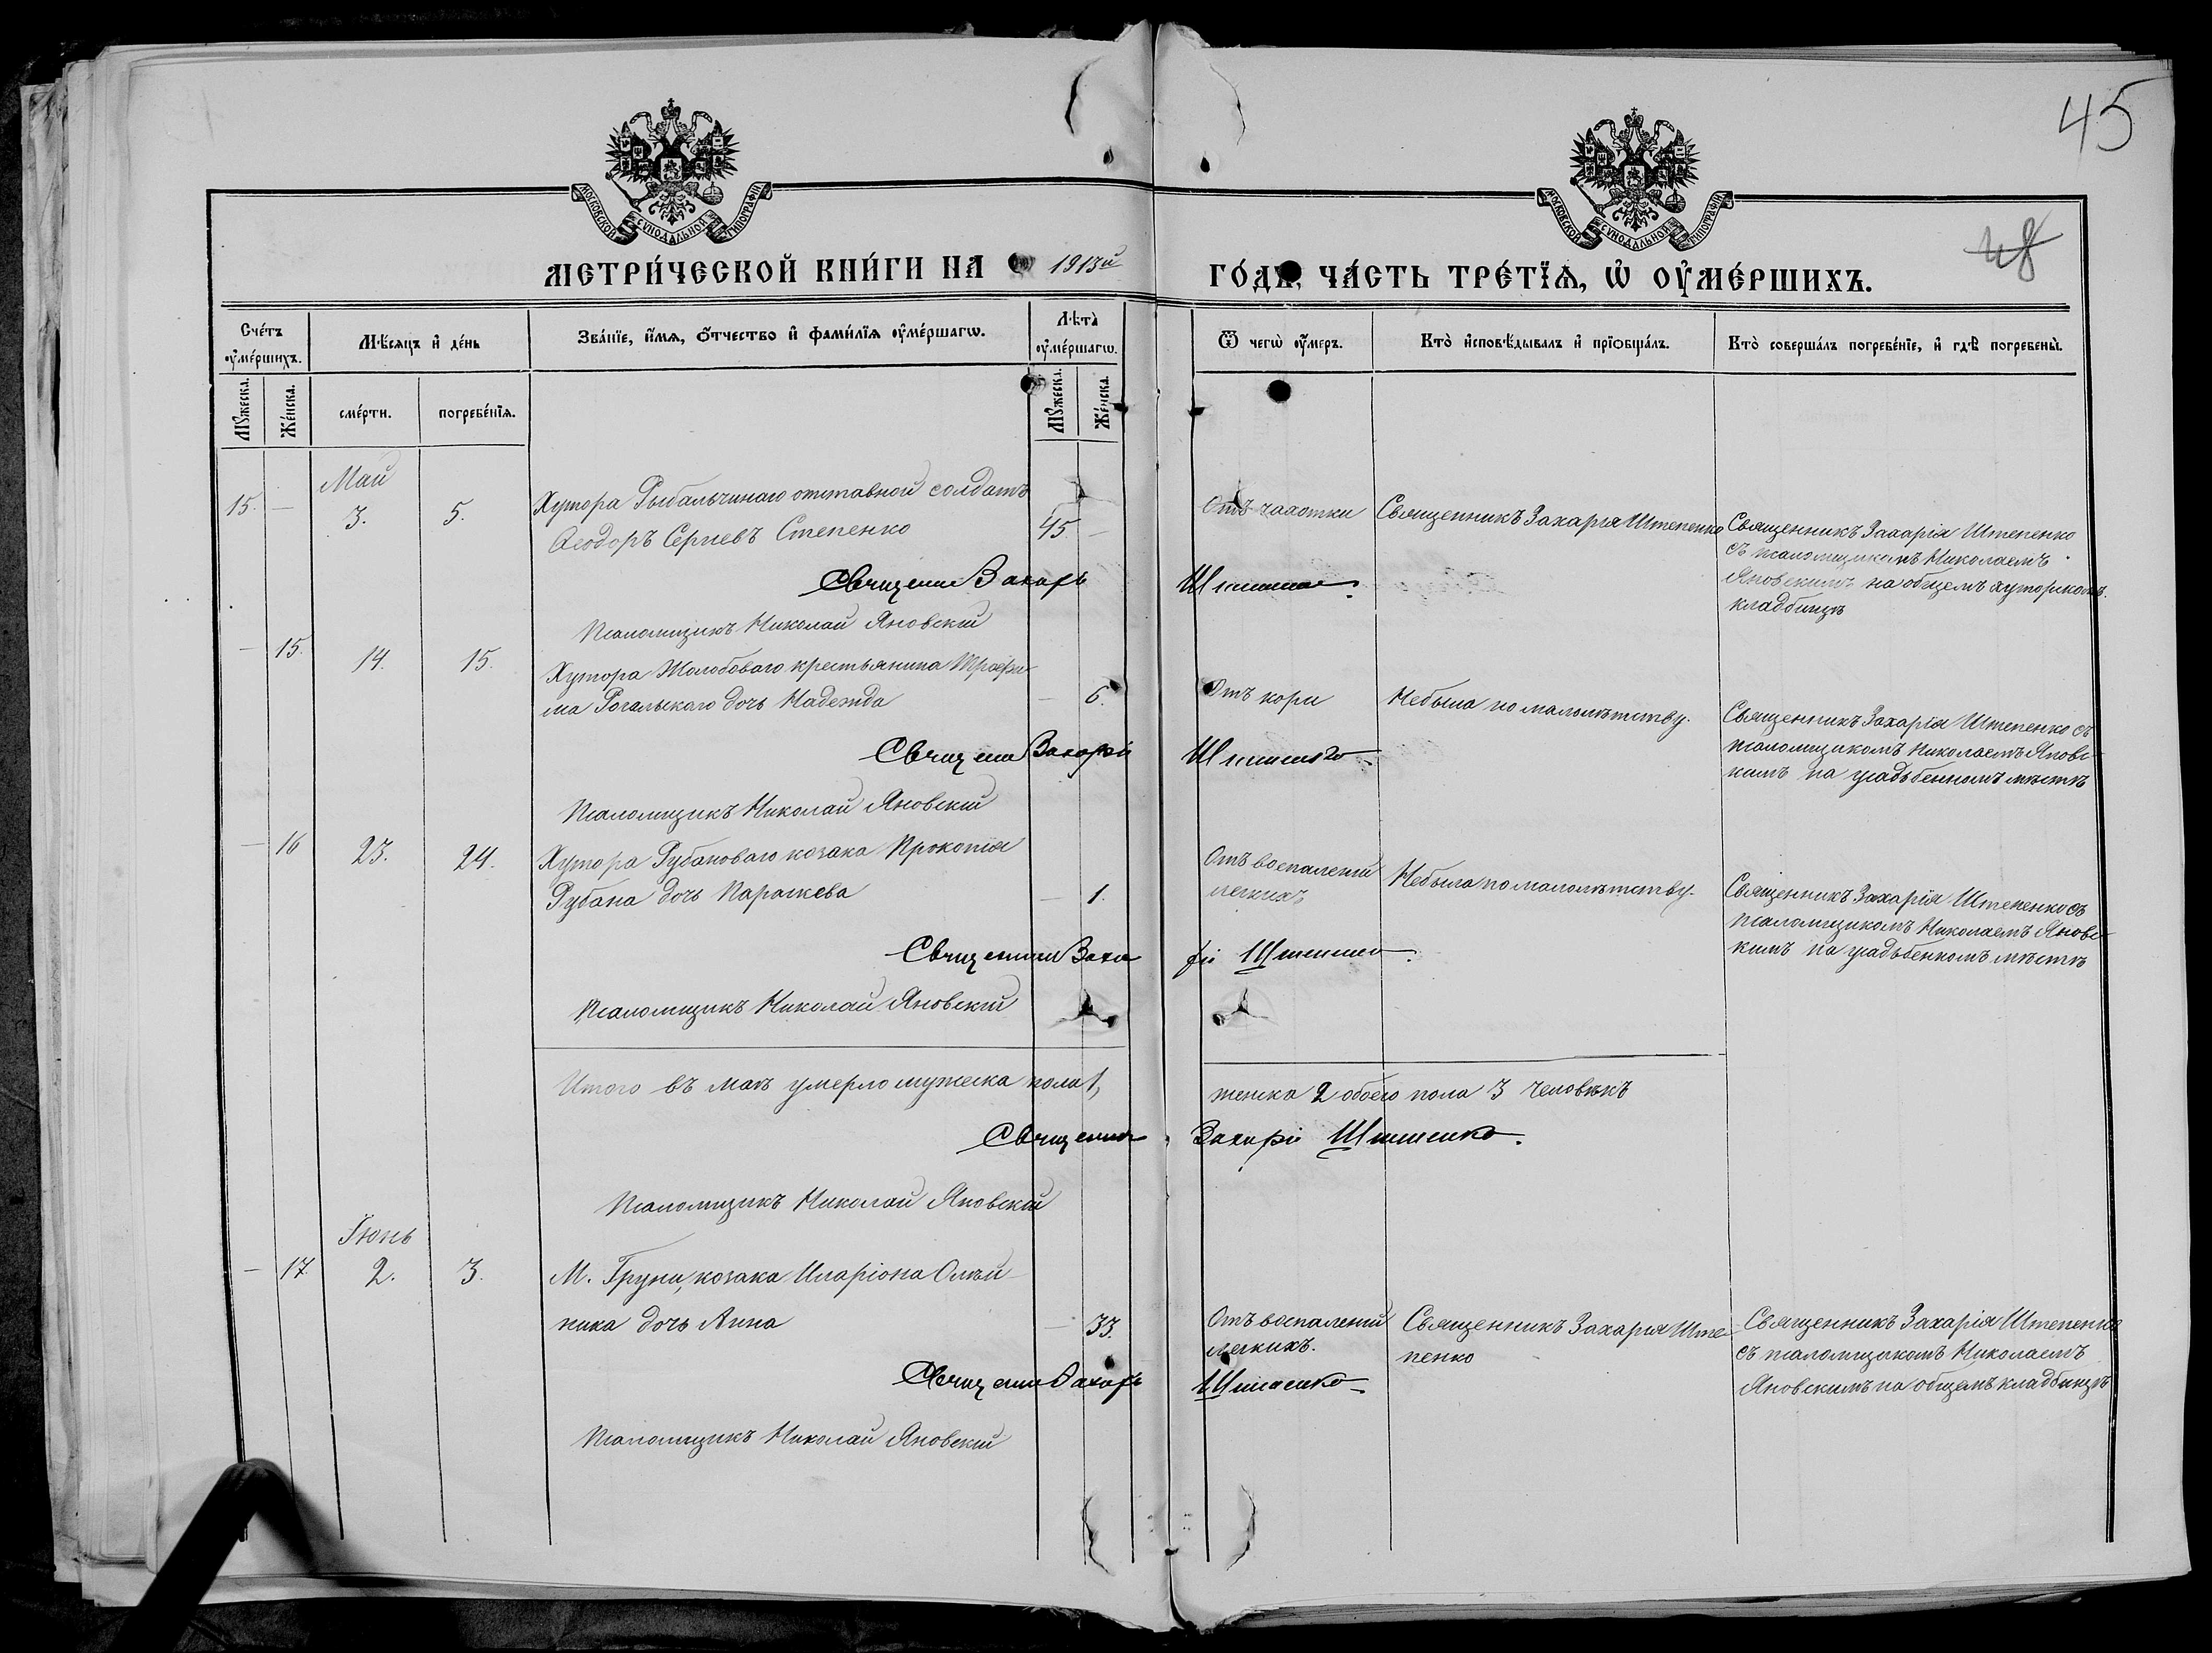 45
48
МОСКОВСКОЙ СѴНОДАЛЬНОЙ ТИПОГРАФІИ
МОСКОВСКОЙ СѴНОДАЛЬНОЙ ТИПОГРАФІИ
МЕТРИ́ЧЕСКОЙ КНИ́ГИ НА 1913й ГО́ДЪ, ЧА́СТЬ ТРЕ́ТЇѦ, Ѽ ОУ҆МЕ́РШИХЪ.
Сче́тъ оу҆ме́ршихъ.
Мѣ́сяцъ и҆ де́нь
Зва́нїе, и҆́мѧ, ѻ҆́тчество и҆ фами́лїѧ оу҆ме́ршагѡ.
Лѣ́та оу҆ме́ршагѡ.
Ѿ чегѡ̀ оу҆́меръ.
Кто̀ и҆сповѣ́дывалъ и҆ прїѡбща́лъ.
Кто̀ соверша́лъ погребе́нїе, и҆ гдѣ̀ погребены̀.
Мꙋ́жеска. Же́нска. сме́рти. погребе́нїѧ. Мꙋ́жеска. Же́нска.
Май
15. — 3. 5. Хутора Рыбальчинаго отставной солдатъ
Ѳеодоръ Сергіевъ Степенко 45. —
Отъ чахотки
Священникъ Захарія Штепенко
Священникъ Захарія Штепенко
съ псаломщикомъ Николаемъ
Яновскимъ на общемъ хуторском.
кладбищѣ
Священн Захарі Штепенко.
Псаломщикъ Николай Яновскій
— 15. 14. 15. Хутора Жолобоваго крестьянина Трофи-
ма Рогальскаго дочь Надежда — 6.
Отъ кори
Небыла по малолѣтству.
Священникъ Захарія Штепенко съ
псаломщикомъ Николаемъ Яновс-
кимъ на усадьбенномъ мѣстѣ
Священ Захарій Штепенко
Псаломщикъ Николай Яновскій
— 16 23. 24. Хутора Рубановаго козака Прокопія
Рубана дочь Параскева — 1.
Отъ воспаленій
легкихъ
Небыла по малолѣтству.
Священникъ Захарія Штепенко съ
псаломщикомъ Николаемъ Яновс-
кимъ на усадьбенномъ мѣстѣ
Священник Захарій Штепенко.
Псаломщикъ Николай Яновскій
Итого въ маѣ умерло мужеска пола 1, женска 2 обоего пола 3 человѣкъ
Священник Захарій Штепенко.
Псаломщикъ Николай Яновскій
Іюнь
— 17. 2. 3. М. Груни, козака Иларіона Олѣй-
ника дочь Анна — 33.
Отъ воспаленій
легкихъ.
Священникъ ЗахаріяШте-
пенко
Священникъ Захарія Штепенко
съ псаломщикомъ Николаемъ
Яновскимъ на общемъ кладбищѣ
Священ Захарі Штепенко
Псаломщикъ Николай Яновскій